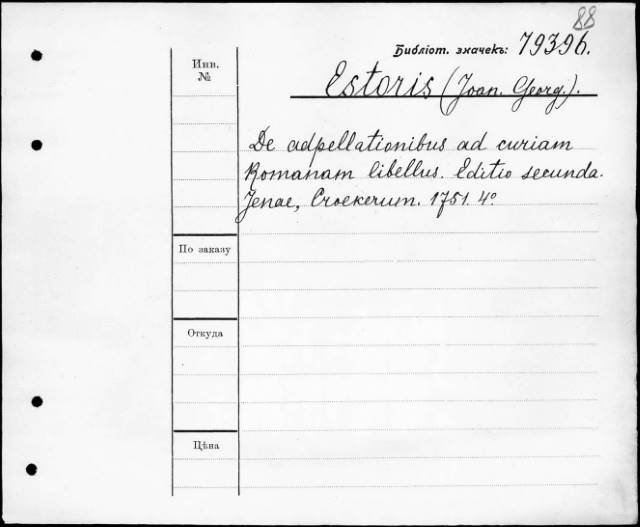 88
Библіот. значекъ: 79396.
Инв.
№
Estoris (Joan. Georg.).
De adpellationibus ad curiam
Romanam libellus. Editio secunda.
Jenae, Croekerum. 1751. 4º
По заказу
Откуда
Цѣна